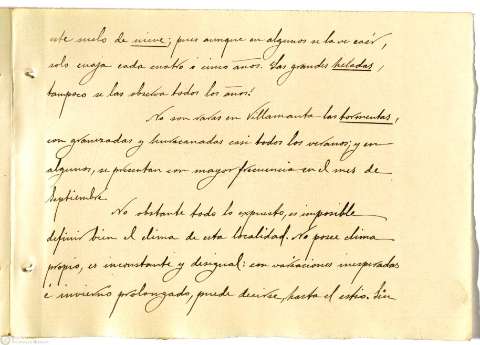 este suelo de nieve; pues aunque en algunos se la ve caér,
solo cuaja cada cuatro ó cinco años. Las grandes heladas,
tampoco se las observa todos los años.
No son raras en Villamanta las tormentas,
con granizadas y huracanadas casi todos los veranos; y en
algunos, se presentan con mayor frecuencia en el mes de
Septiembre
No obstante todo lo expuesto, es imposible
definir bien el clima de esta localidad. No posee clima
propio, es inconstante y desigual: con variaciones inesperadas
é invierno prolongado, puede decirse, hasta el estío. Sin